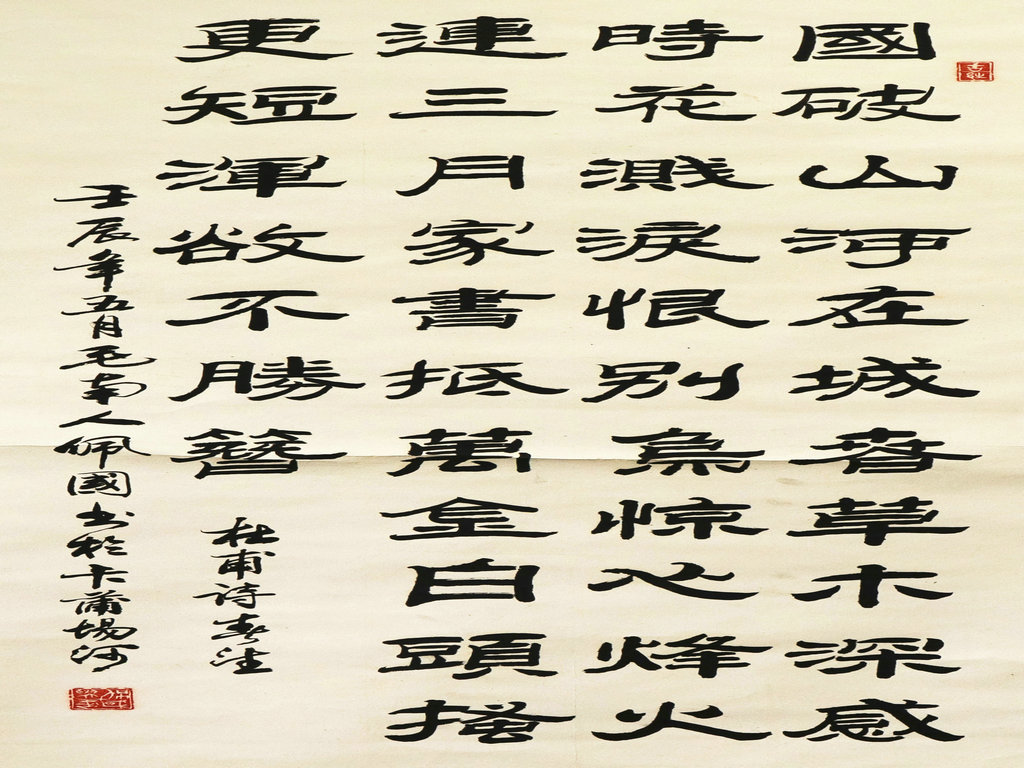 國破山河在城春草木深感
時花濺淚恨別鳥惊心烽火
連三月家書抵萬金白頭搔
更短渾欲不勝簪
杜甫诗春望
壬辰年五月毛南人佩國书於卡蒲場河